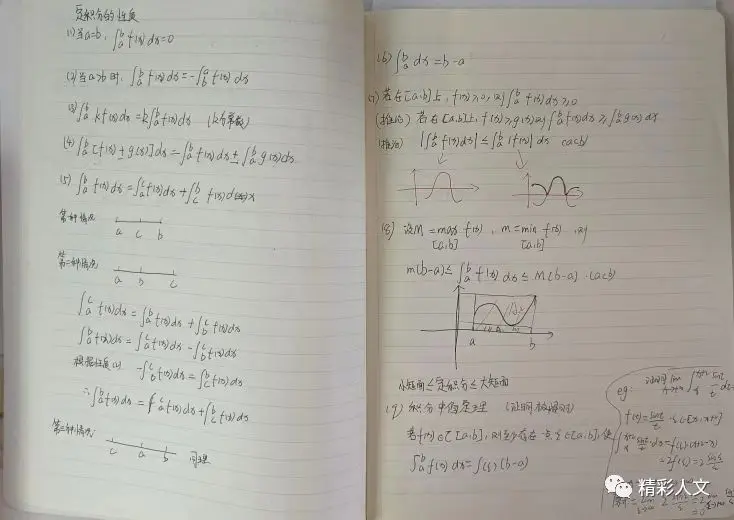 定积分的性质
(1)当a=b, ∫_a^b f(x)dx=0
(2)当a>b时, ∫_a^b f(x)dx=-∫_b^a f(x)dx
(3)∫_a^b kf(x)dx=k∫_a^b f(x)dx (k为常数)
(4)∫_a^b[f(x)±g(x)]dx=∫_a^b f(x)dx±∫_a^b g(x)dx
(5)∫_a^b f(x)dx=∫_a^c f(x)dx+∫_c^b f(x)dx
第一种情况
a c b
第二种情况
a b c
∫_a^c f(x)dx=∫_a^b f(x)dx+∫_b^c f(x)dx
∫_a^b f(x)dx=∫_a^c f(x)dx-∫_b^c f(x)dx
根据性质(2) -∫_b^c f(x)dx=∫_c^b f(x)dx
∴∫_a^b f(x)dx=∫_a^c f(x)dx+∫_c^b f(x)dx
第三种情况
c a b 同理
(6)∫_a^b dx=b-a
(7)若在[a,b]上, f(x)≥0, 则∫_a^b f(x)dx≥0
(推论) 若在[a,b]上, f(x)≥g(x)则∫_a^b f(x)dx≥∫_a^b g(x)dx
(推论) |∫_a^b f(x)dx|≤∫_a^b|f(x)|dx (a<b)
(8) 设M=max f(x), m=min f(x), 则
[a,b] [a,b]
m(b-a)≤∫_a^b f(x)dx≤M(b-a) (a<b)
a b
小矩面≤定积分≤大矩面
(9) 积分中值定理
若f(x)∈C[a,b], 则至少存在一点ξ∈[a,b], 使
∫_a^b f(x)dx=f(ξ)(b-a)
eg:
精彩人文